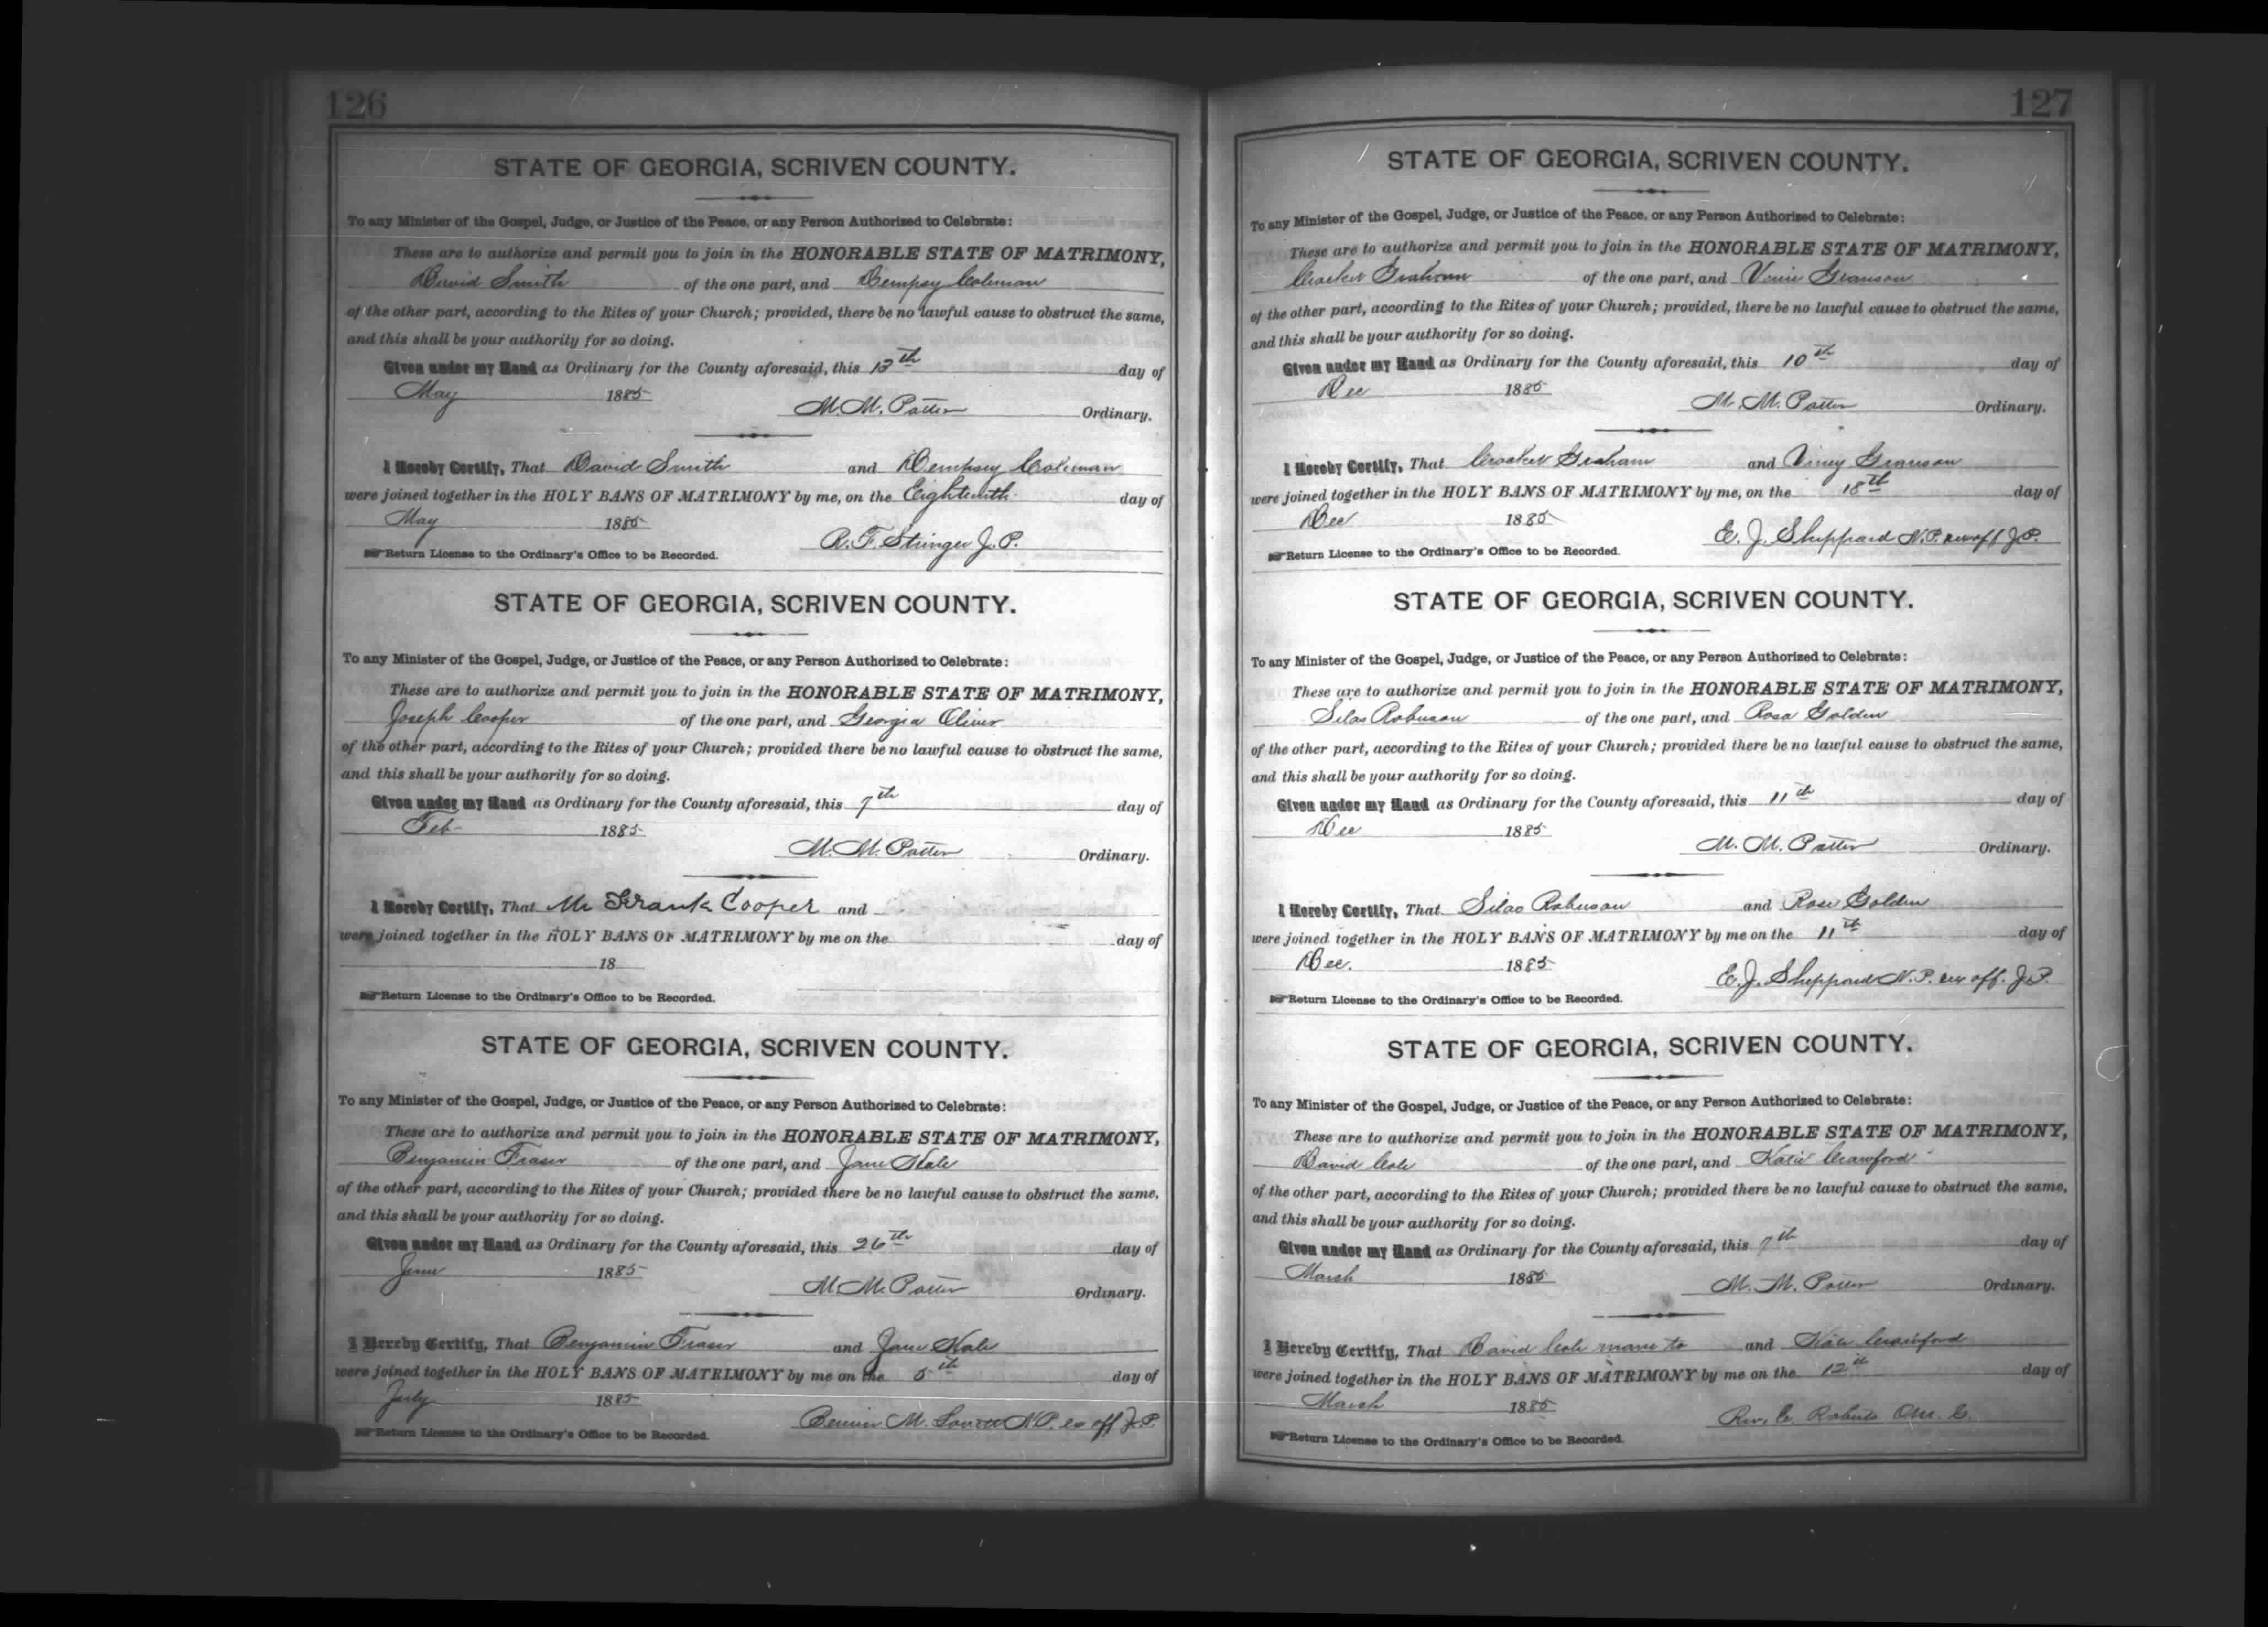 126
STATE OF GEORGIA, SCRIVEN COUNTY.
To any Minister of the Gospel, Judge, or Justice of the Peace, or any Person Authorized to Celebrate:
These are to authorize and permit you to join in the HONORABLE STATE OF MATRIMONY,
David Smith of the one part, and Dempsey Coleman
of the other part, according to the Rites of your Church; provided, there be no lawful cause to obstruct the same,
and this shall be your authority for so doing.
Given under my Hand as Ordinary for the County aforesaid, this 13th day of
May 1885
M. M. Potter Ordinary.
I Hereby Certify, That David Smith and Dempsey Coleman
were joined together in the HOLY BANS OF MATRIMONY by me, on the Eighteenth day of
May 1885
R. F. Stringer J. P.
Return License to the Ordinary's Office to be Recorded.
STATE OF GEORGIA, SCRIVEN COUNTY.
To any Minister of the Gospel, Judge, or Justice of the Peace, or any Person Authorized to Celebrate:
These are to authorize and permit you to join in the HONORABLE STATE OF MATRIMONY,
Joseph Cooper of the one part, and Georgia Oliver
of the other part, according to the Rites of your Church; provided there be no lawful cause to obstruct the same,
and this shall be your authority for so doing.
Given under my Hand as Ordinary for the County aforesaid, this 7th day of
Feb 1885
M. M. Potter Ordinary.
I Hereby Certify, That Mr Frank Cooper and
were joined together in the HOLY BANS OF MATRIMONY by me on the day of
18
Return License to the Ordinary's Office to be Recorded.
STATE OF GEORGIA, SCRIVEN COUNTY.
To any Minister of the Gospel, Judge, or Justice of the Peace, or any Person Authorized to Celebrate:
These are to authorize and permit you to join in the HONORABLE STATE OF MATRIMONY,
Benjamin Fraser of the one part, and Jane
of the other part, according to the Rites of your Church; provided there be no lawful cause to obstruct the same,
and this shall be your authority for so doing.
Given under my Hand as Ordinary for the County aforesaid, this 26th day of
June 1885
M. M. Potter Ordinary.
I Hereby Certify, That Benjamin Fraser and Jane
were joined together in the HOLY BANS OF MATRIMONY by me on the 5th day of
July 1885
M. N.P. ex off J.P.
Return License to the Ordinary's Office to be Recorded.
127
STATE OF GEORGIA, SCRIVEN COUNTY.
To any Minister of the Gospel, Judge, or Justice of the Peace, or any Person Authorized to Celebrate:
These are to authorize and permit you to join in the HONORABLE STATE OF MATRIMONY,
Graham of the one part, and
of the other part, according to the Rites of your Church; provided, there be no lawful cause to obstruct the same,
and this shall be your authority for so doing.
Given under my Hand as Ordinary for the County aforesaid, this 10th day of
Dec 1885
M. M. Potter Ordinary.
I Hereby Certify, That Graham and Viney
were joined together in the HOLY BANS OF MATRIMONY by me, on the 18th day of
Dec 1885
E. J. Sheppard N.P. J.P.
Return License to the Ordinary's Office to be Recorded.
STATE OF GEORGIA, SCRIVEN COUNTY.
To any Minister of the Gospel, Judge, or Justice of the Peace, or any Person Authorized to Celebrate:
These are to authorize and permit you to join in the HONORABLE STATE OF MATRIMONY,
Silas Robinson of the one part, and Rosa Golden
of the other part, according to the Rites of your Church; provided there be no lawful cause to obstruct the same,
and this shall be your authority for so doing.
Given under my Hand as Ordinary for the County aforesaid, this 11th day of
Dec 1885
M. M. Potter Ordinary.
I Hereby Certify, That Silas Robinson and Rosa Golden
were joined together in the HOLY BANS OF MATRIMONY by me on the 11th day of
Dec. 1885
E. J. Sheppard N.P. ex off. J.P.
Return License to the Ordinary's Office to be Recorded.
STATE OF GEORGIA, SCRIVEN COUNTY.
To any Minister of the Gospel, Judge, or Justice of the Peace, or any Person Authorized to Celebrate:
These are to authorize and permit you to join in the HONORABLE STATE OF MATRIMONY,
David Cole of the one part, and Katie Crawford
of the other part, according to the Rites of your Church; provided there be no lawful cause to obstruct the same,
and this shall be your authority for so doing.
Given under my Hand as Ordinary for the County aforesaid, this 7th day of
March 1885
M. M. Potter Ordinary.
I Hereby Certify, That David Cole and Katie Crawford
were joined together in the HOLY BANS OF MATRIMONY by me on the 12th day of
March 1885
Rev. C. Roberts
Return License to the Ordinary's Office to be Recorded.